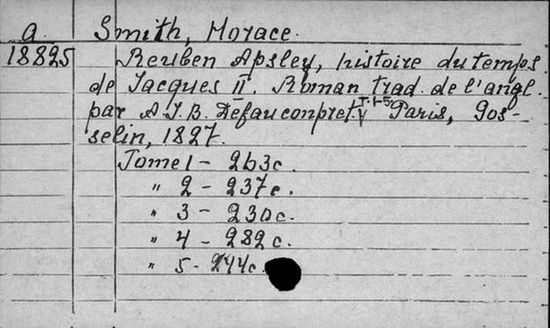 a. Smith, Horace.
18825 Reuben Apsley, histoire du temps
de Jacques II. Roman trad. de l'angl.
par A.J.B. Defauconpret. T. 1-5 Paris, Gos-
selin, 1827.
Tome 1 - 263c.
" 2 - 237c.
" 3 - 230c.
" 4 - 282c.
" 5 - 244c.